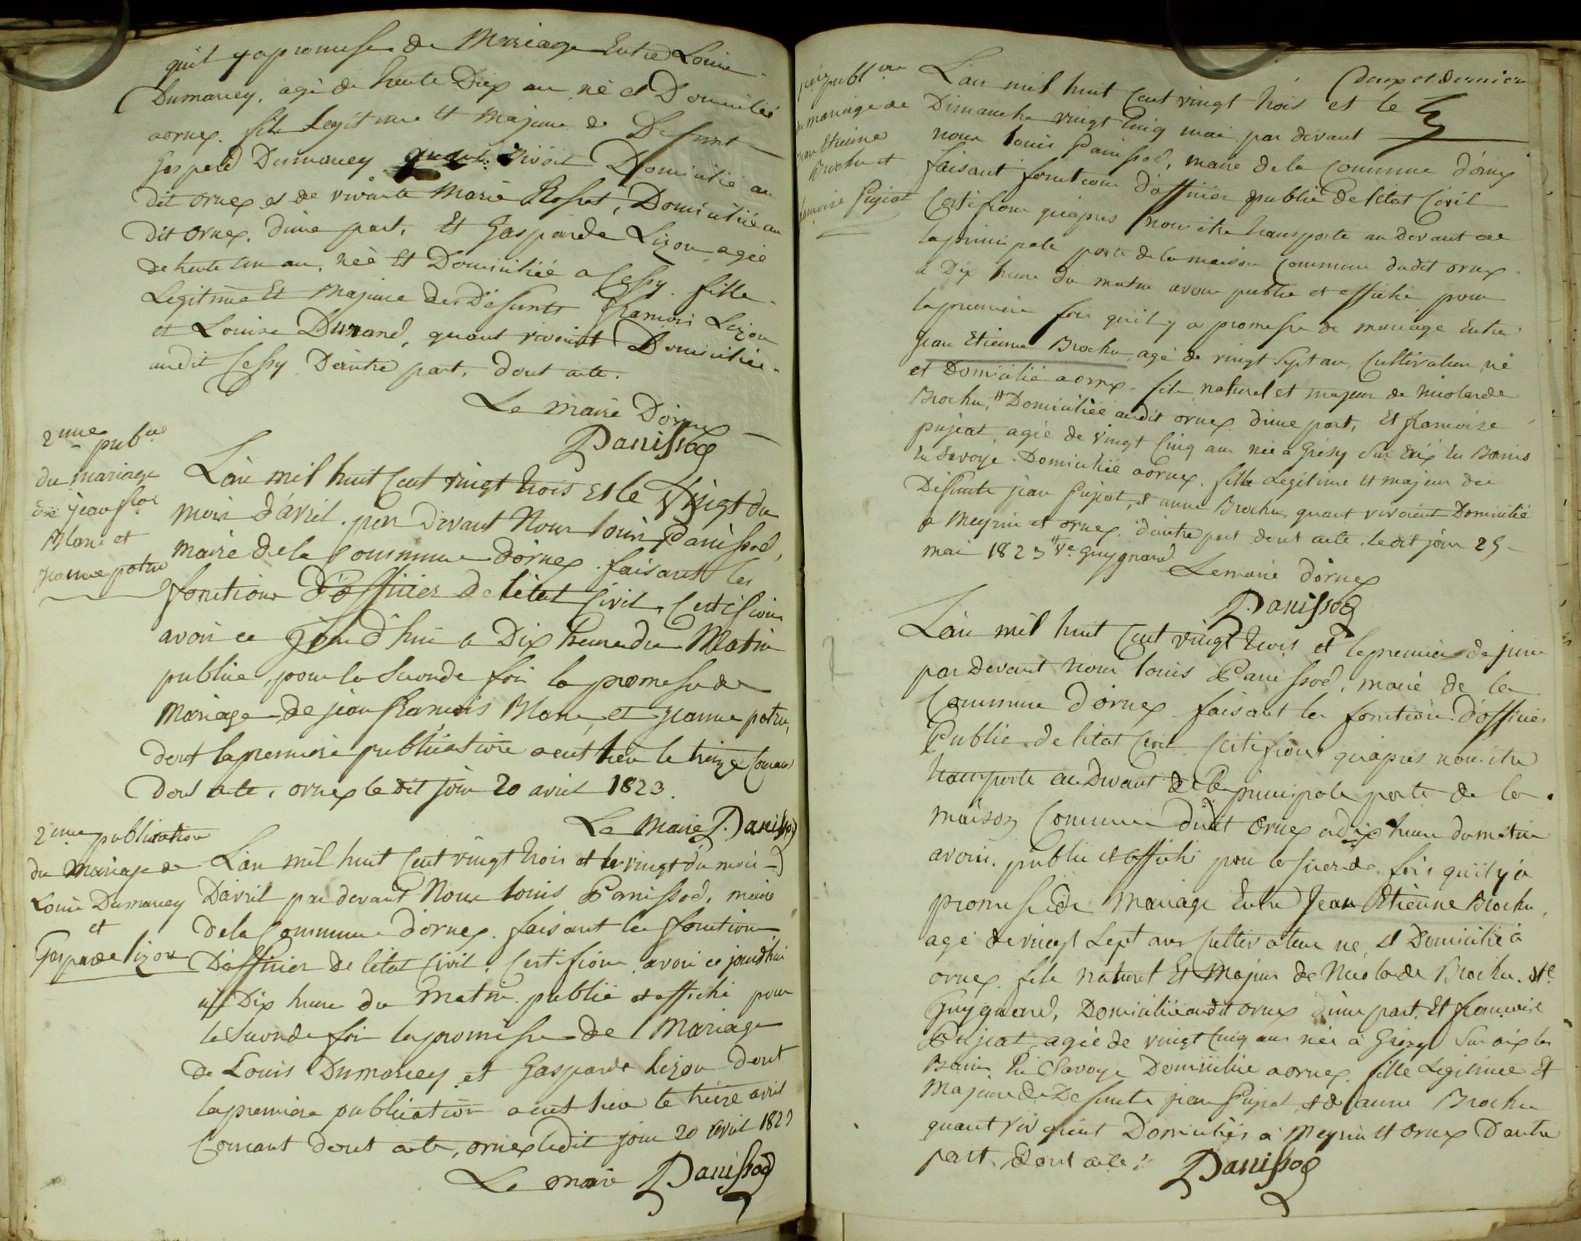 qu'il y a promesse de Mariage Entre Louis
Dumarey, agé de trente Dix an né et Domicilié
a ornex. fils Legitime et Majeur de Defunt
Gaspard Dumarey quant vivoit Domicilié au
dit ornex et de vivante Marie Rosset, Domiciliée au
dit ornex. d'une part, Et Gasparde Lizon agée
de trente un an, née Et Domiciliée a Cessy. fille
Legitime Et Majeure des Defunts francois Lizon
et Louise Durand, quant vivoient Domiciliés
audit Cessy D'autre part, dont acte.
Le maire Dornex
Panissod
2me pubon
du mariage
de jean fois
Blanc et
jeanne potru
L'an mil huit Cent vingt trois et le Vingt du
mois d'avril. par devant Nous louis Panissod,
maire de la Commune d'ornex. faisant les
fonctions D'officier de l'état Civil, Certifions
avoir ce jourd'hui a Dix heures du Matin
publiée, pour la seconde fois la promesse de
Mariage de jean francois Blanc et jeanne potru,
dont la premiere publication a eut lieu le treize Courant
Dont acte, ornex le dit jour 20 avril 1823.
Le Maire Panissod
2me publication
du Mariage de
Louis Dumarey
et
Gasparde lizon
L'an mil huit Cent vingt trois et le vingt du mois
D'avril par devant Nous louis Panissod, maire
de la Commune d'ornex. faisant les fonctions
D'officier de l'état Civil. Certifions avoir ce jourd'hui
a Dix heures du matin publié et affiché pour
la seconde fois la promesse de Mariage
de Louis Dumarey et Gasparde lizon dont
la premiere publication a eut lieu le treize avril
Courant dont acte, ornex ledit jour 20 avril 1823
Le maire Panissod
publion
du mariage de
jean Etienne
Brochu et
francoise Pujeat
L'an mil huit Cent vingt trois et le
Dimanche vingt Cinq mai par devant
nous louis Panissod, maire de la Commune d'ornex
faisant fonctions d'officier public de l'état Civil
Certifions qu'après nous être transporté au devant de
la principale porte de la maison Commune dudit ornex
a Dix heures du matin avons publié et affiché pour
la premiere fois qu'il y a promesse de mariage Entre
jean Etienne Brochu agé de vingt Sept an, Cultivateur, né
et Domicilié a ornex. fils naturel et majeur de Nicolarde
Brochu, Domiciliée audit ornex d'une part, Et francoise
pujeat, agée de vingt Cinq ans née a Grésy Sur Aix les Bains
en Savoye. Domiciliée a ornex. fille Légitime et majeur des
Defunts jean Pujeat, et anne Brochu, quant vivoient Domicilié
a Meyrin et ornex. d'autre part dont acte. le dit jour 25
mai 1823 Ve Guyguard
Le maire d'ornex
Panissod
L'an mil huit Cent vingt trois et le premier de juin
par devant nous louis Panissod, maire de la
Commune d'ornex faisant les fonctions D'officier
Public de l'état Civil Certifions qu'après nous être
transporté au Devant de la principale porte de la
maison Commune dudit ornex a dix heures du matin
avons publié et affiché pour la seconde fois qu'il y a
promesse de Mariage Entre Jean Etienne Brochu,
agé de vingt Sept ans Cultivateur né et Domicilié a
ornex. fils naturel Et Majeur de Nicolarde Brochu. Ve
Guyguard, Domiciliée audit ornex d'une part, Et francoise
Pujeat agée de vingt Cinq ans née à Grésy Sur aix les
Bains En Savoye Domiciliée a ornex. fille Légitime Et
Majeure de Defunts jean Pujeat, et de anne Brochu
quant vivoient Domiciliés a Meyrin et ornex D'autre
part. Dont acte. Panissod